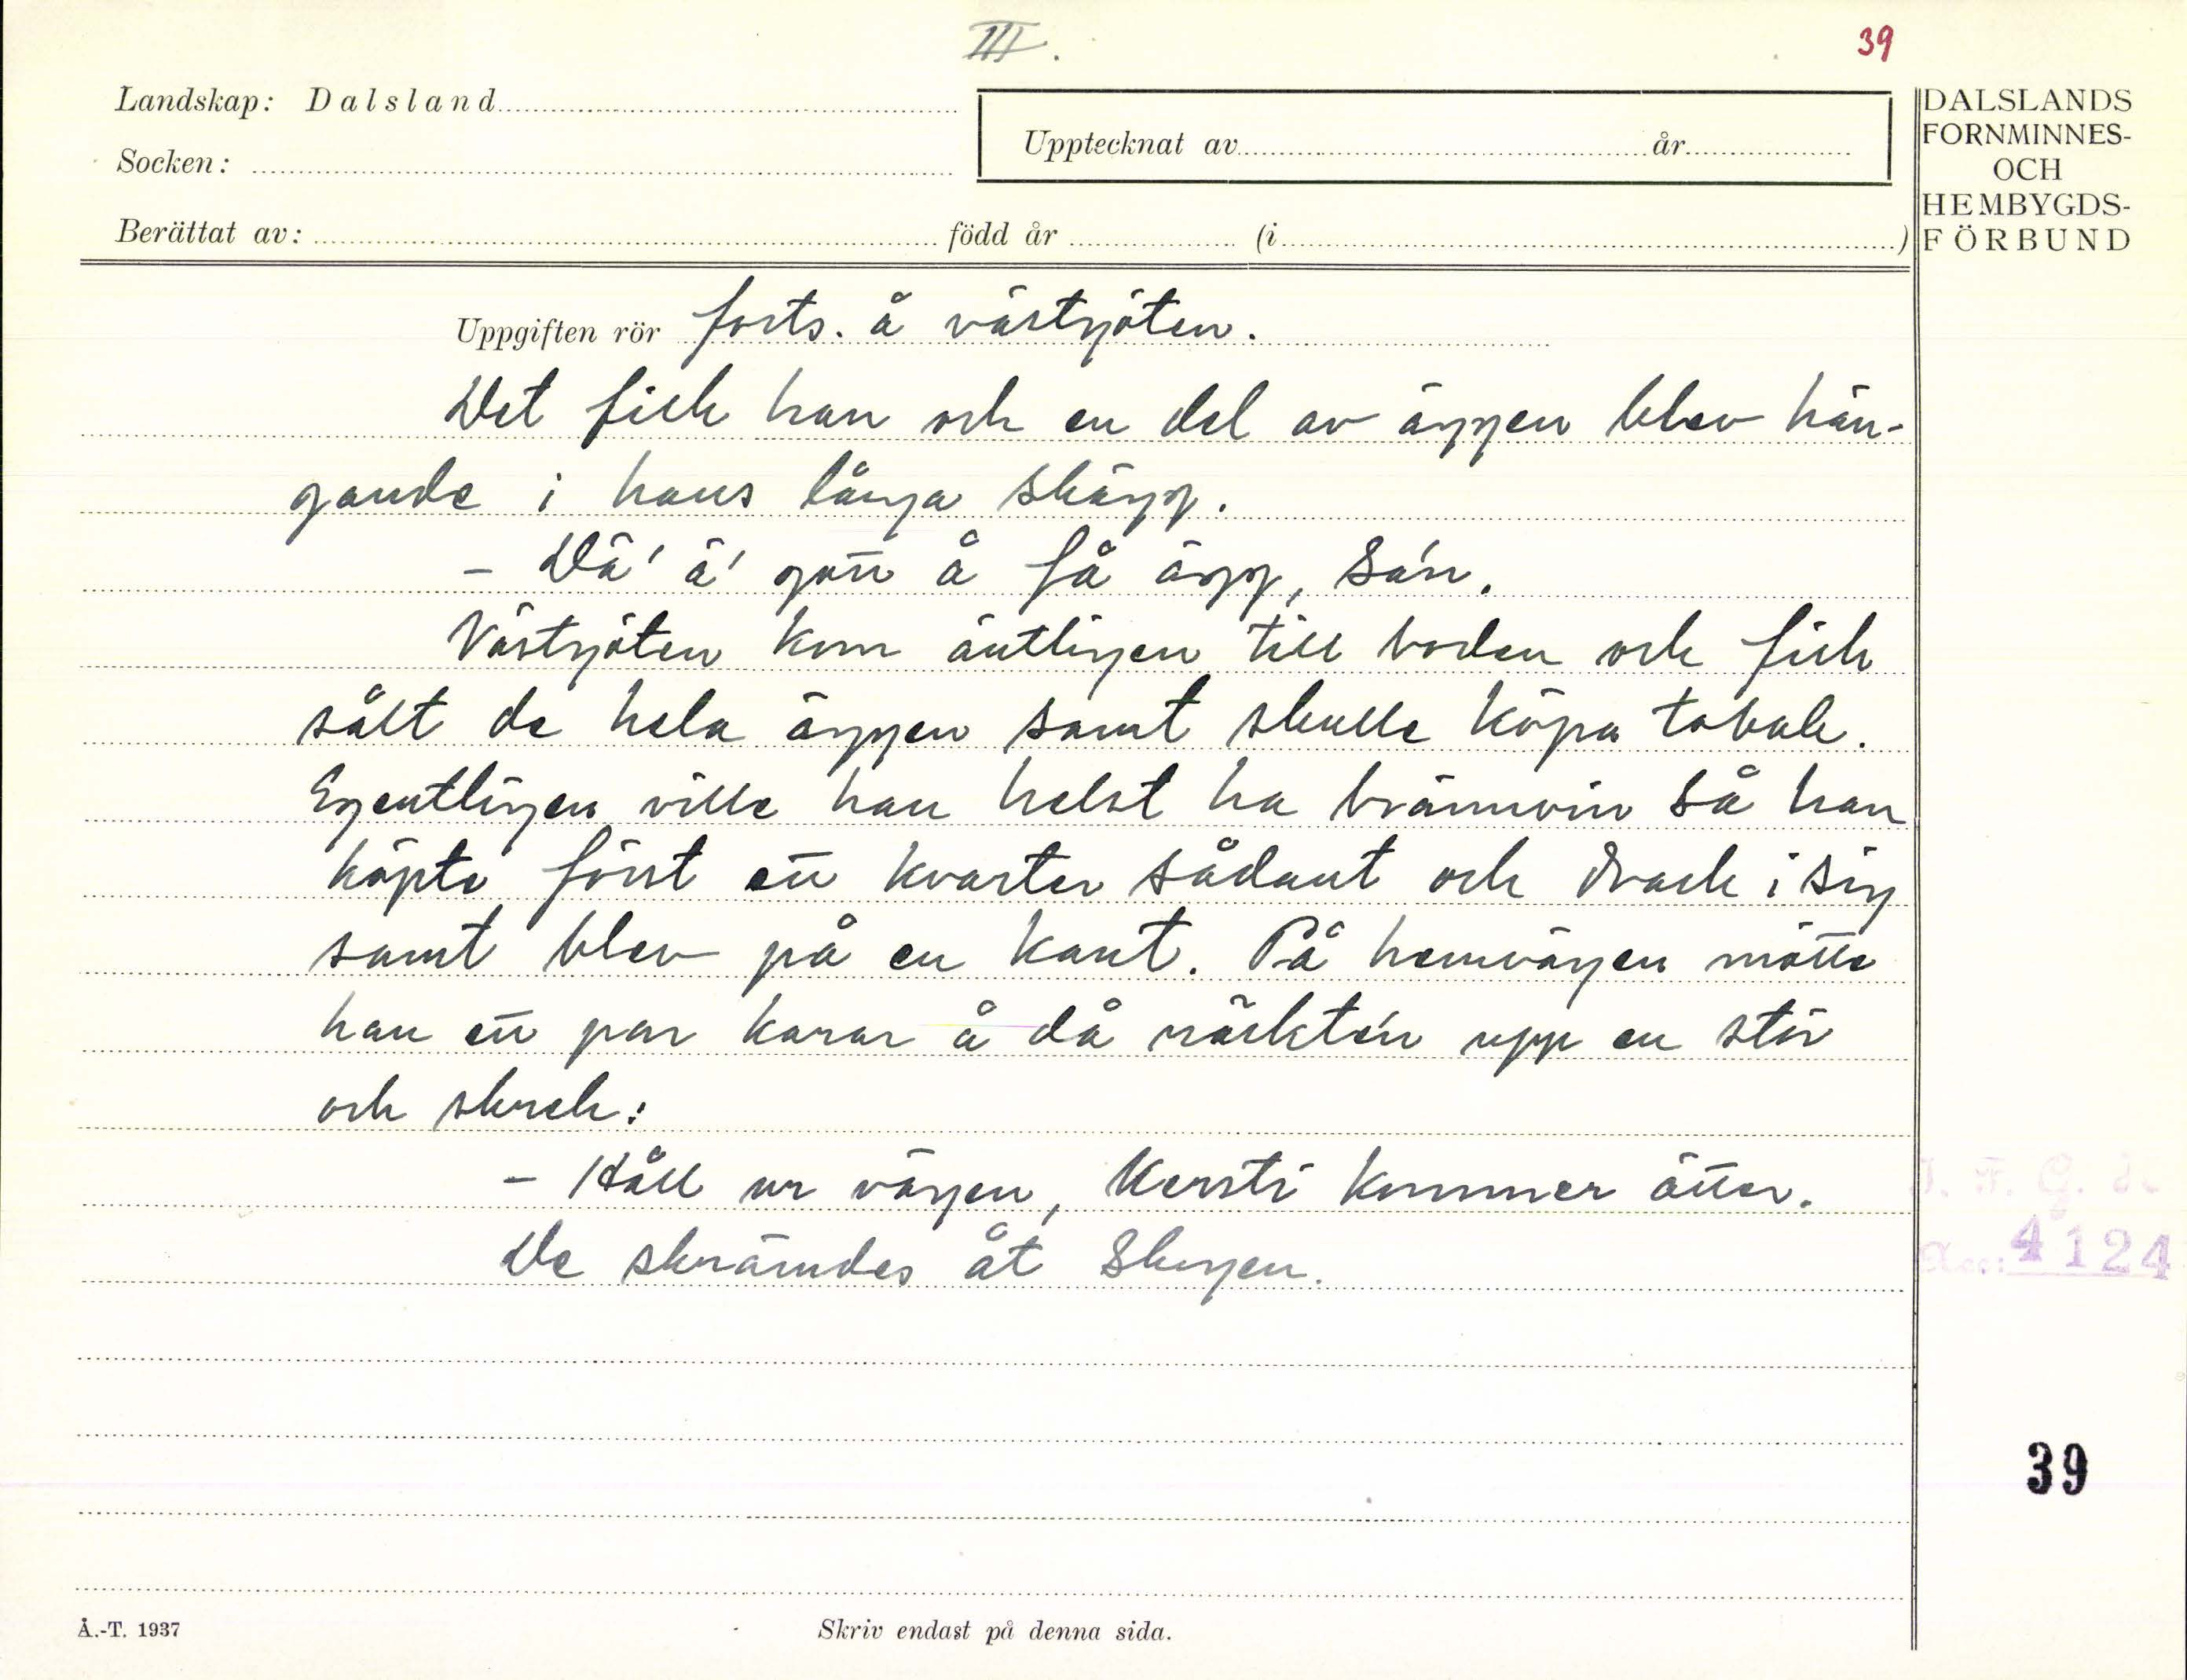 III.
39
Landskap: Dalsland
Socken:
Upptecknat av år
Berättat av: född år (i )
DALSLANDS
FORNMINNES-
OCH
HEMBYGDS-
FÖRBUND
Uppgiften rör forts. å västgöten.
Det fick han och en del av äggen blev hän-
gande i hans långa skägg.
- Dä' ä' gott å få ägg, sa'n.
Västgöten kom äntligen till boden och fick
sålt de hela äggen samt skulle köpa tobak.
Egentligen ville han helst ha brännvin så han
köpte först ett kvarter sådant och drack i sig
samt blev på en kant. På hemvägen mötte
han ett par karar å då räckte'n upp en stör
och skrek:
- Håll ur vägen, Kersti kommer ätter.
De skrämdes åt skogen.
I. F. G. d.
Acc: 4124
39
Å.-T. 1937
Skriv endast på denna sida.